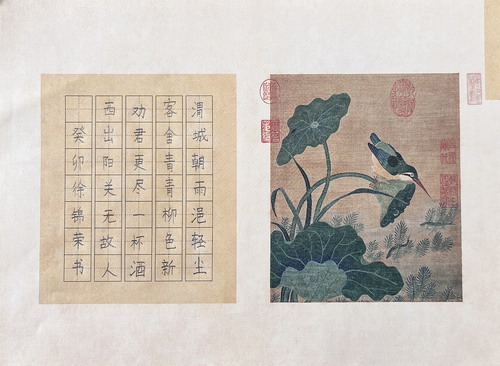 渭城朝雨浥轻尘
客舍青青柳色新
劝君更尽一杯酒
西出阳关无故人
癸卯徐锦荣书